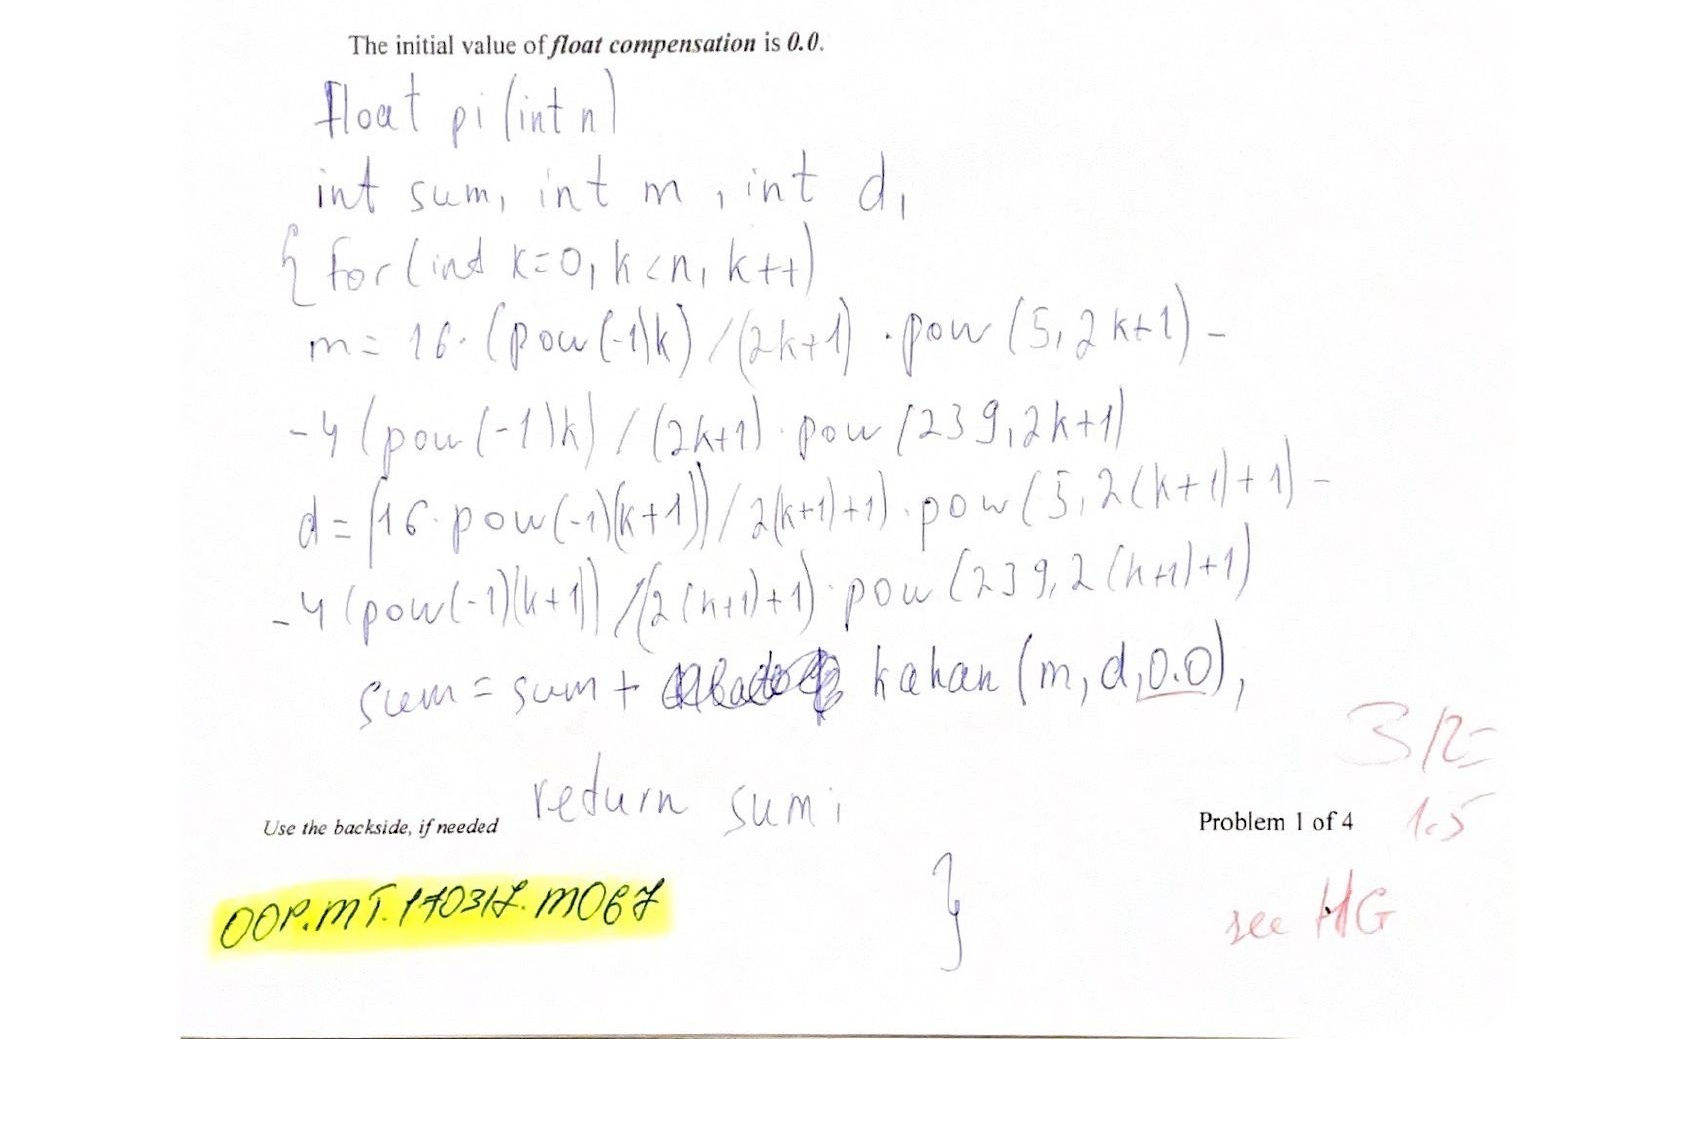 The initial value of float compensation is 0.0.
float pi (int n)
int sum, int m, int d,
{ for (int k=0, k<n, k++)
m = 16· (pow(-1)k) /(2k+1) · pow (5, 2k+1) -
-4 (pow(-1)k) / (2k+1) · pow (239, 2k+1)
d = (16· pow(-1)(k+1)) / 2(k+1)+1) · pow (5, 2(k+1)+1) -
-4 (pow(-1)(k+1)) /(2(k+1)+1) · pow (239, 2(k+1)+1)
sum = sum + kahan (m, d, 0.0),
3/2=
return sum;
Use the backside, if needed
Problem 1 of 4
1.5
OOP.MT.170317.M067
}
see HG